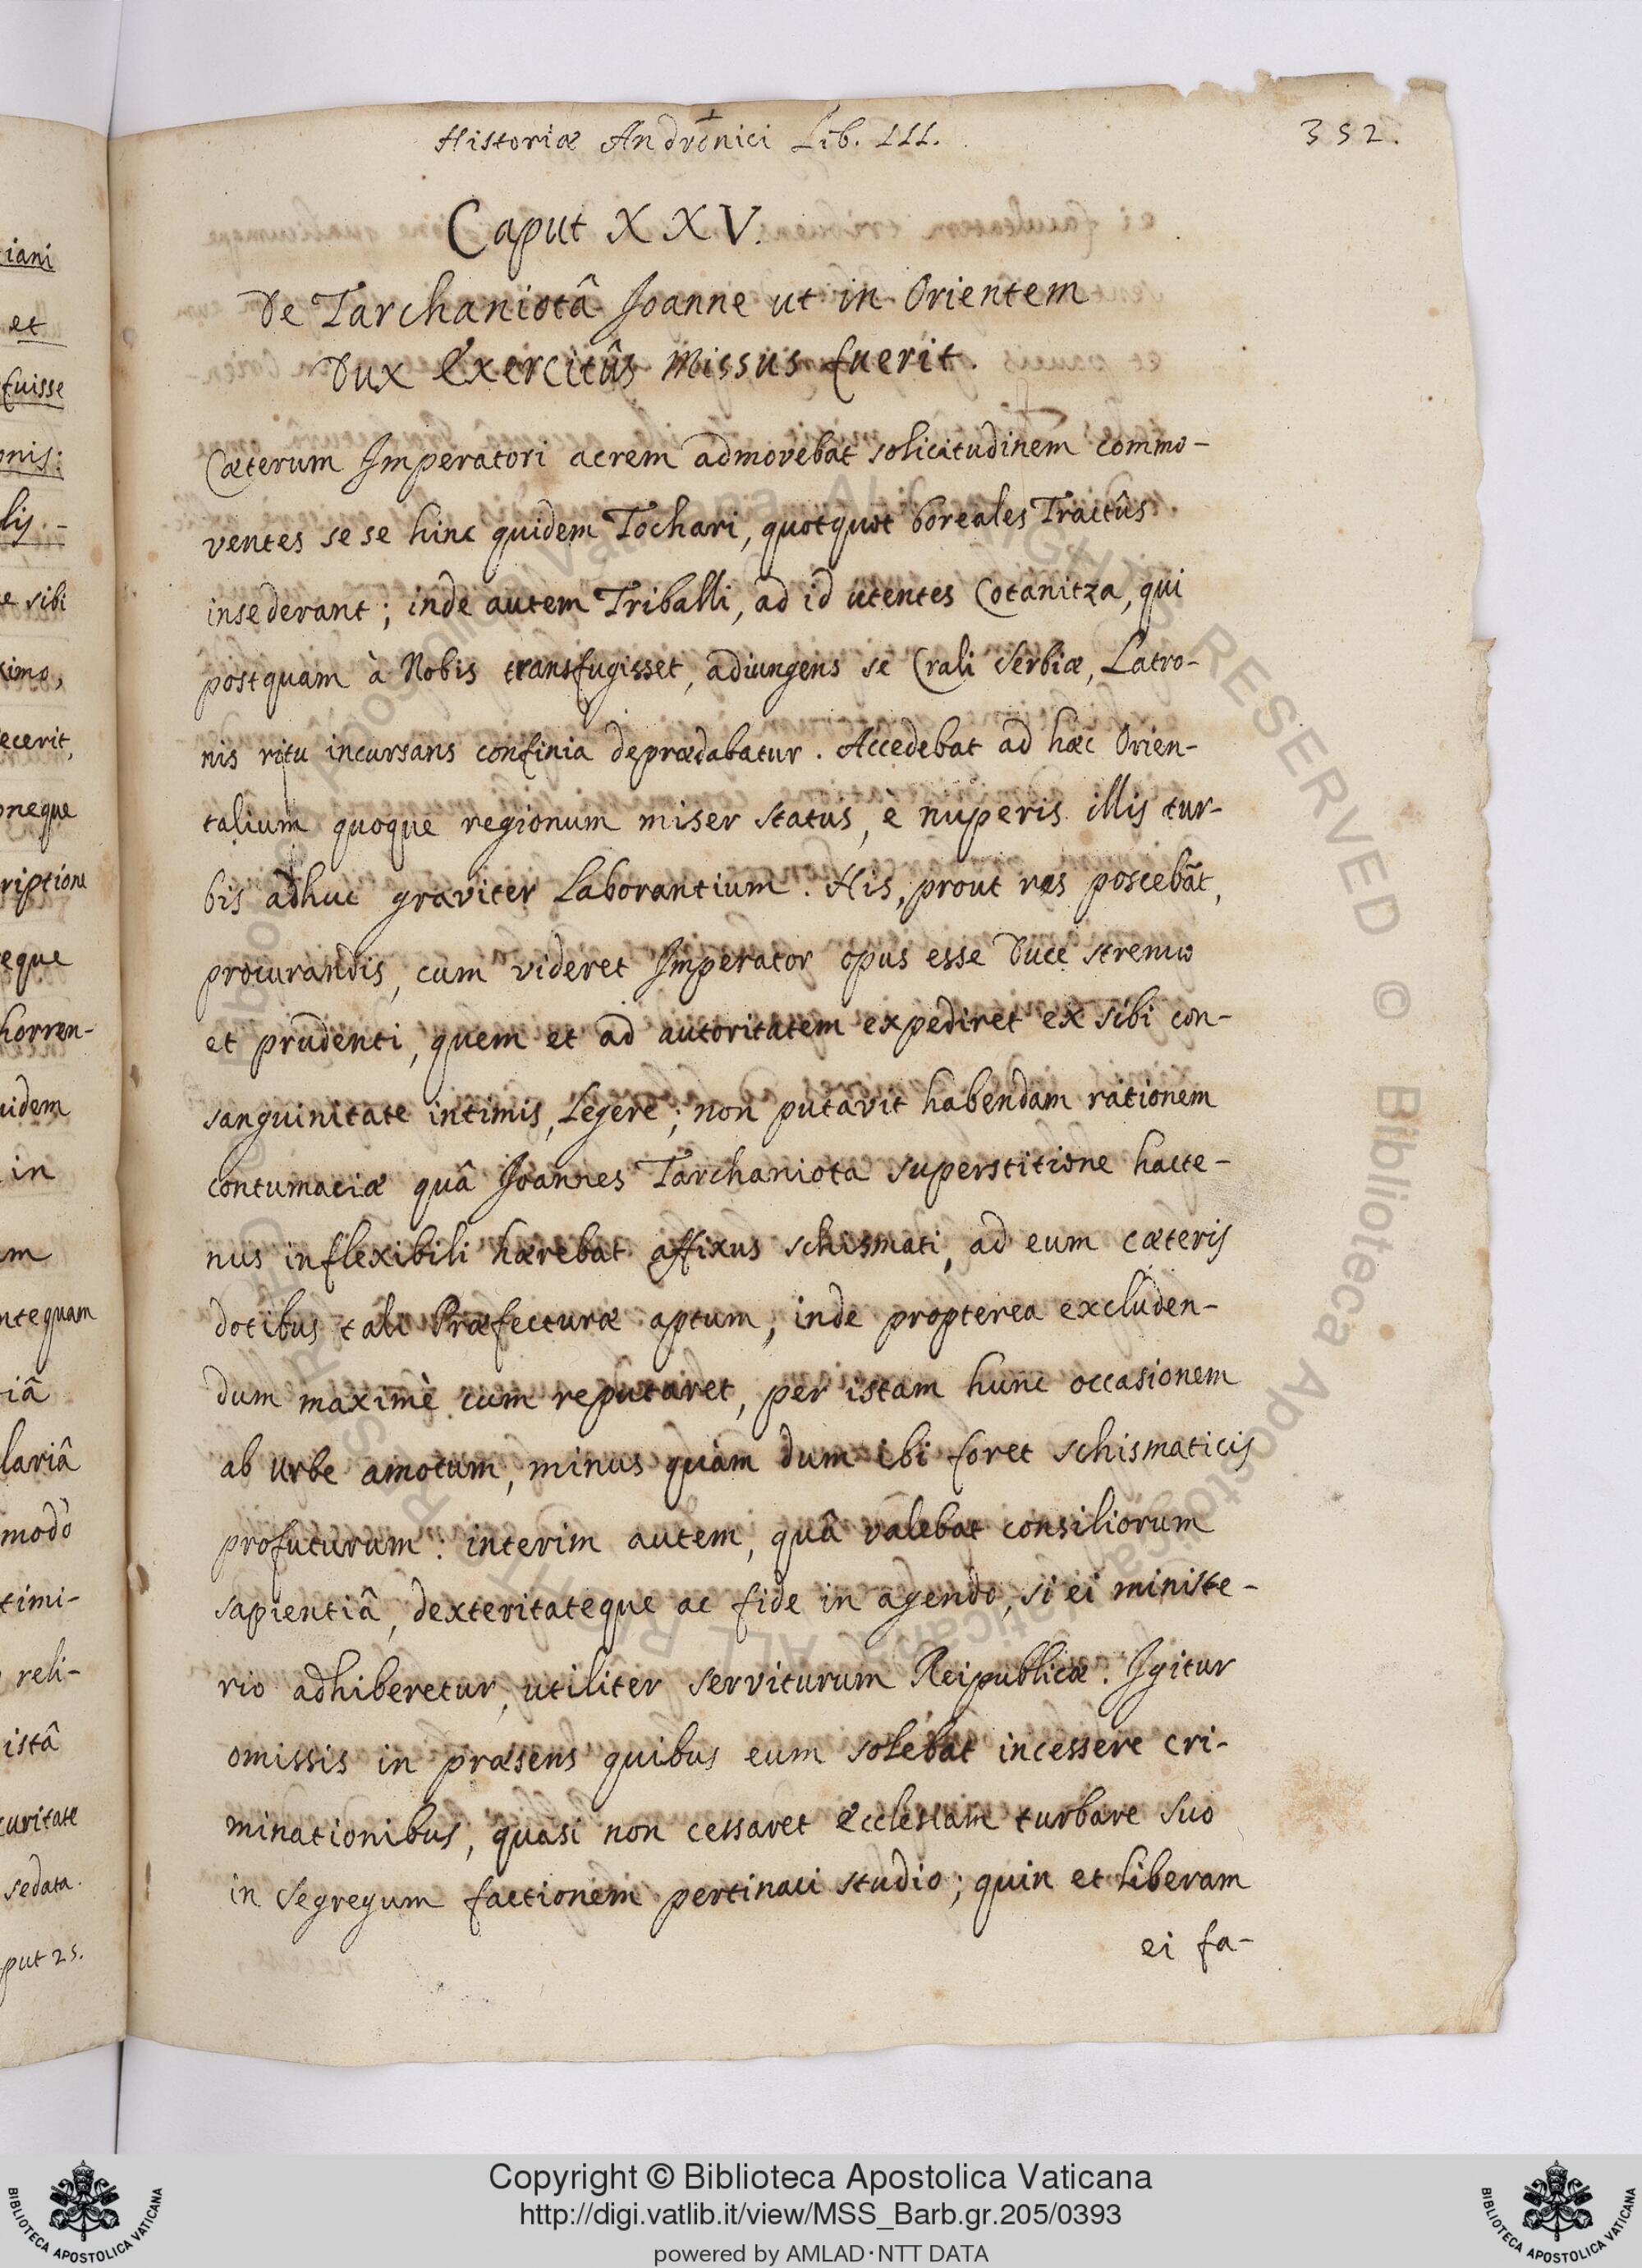 Historiæ Andronici Lib. III.
352.
Caput XXV.
De Tarchaniotâ Joanne ut in Orientem
Dux Exercitûs Missus fuerit.
Cæterum Imperatori acrem admovebat solicitudinem commo-
ventes se se hinc quidem Tochari, quotquot boreales Tractûs
insederant; inde autem Triballi, ad id utentes Cotanitza, qui
postquam à Nobis transfugisset, adiungens se Crali Serbiæ, Latro-
nis ritu incursans confinia deprædabatur. Accedebat ad hæc Orien-
talium quoque regionum miser status, e nuperis illis tur-
bis adhuc graviter Laborantium. His, prout res poscebãt,
procurandis, cum videret Imperator opus esse Duce strenuo
et prudenti, quem et ad autoritatem expediret ex sibi con-
sanguinitate intimis, Legere; non putavit habendam rationem
contumaciæ quâ Joannes Tarchaniota superstitione hacte-
nus inflexibili hærebat affixus schismati, ad eum cæteris
dotibus tali Præfecturæ aptum, inde propterea excluden-
dum maximè cum reputaret, per istam hunc occasionem
ab Urbe amotum, minus quàm dum ibi foret schismaticis
profuturum: interim autem, quâ valebat consiliorum
sapientiâ, dexteritateque ac fide in agendo, si ei ministe-
rio adhiberetur, utiliter serviturum Reipublicæ. Igitur
omissis in præsens quibus eum solebat incessere cri-
minationibus, quasi non cessaret Ecclesiam turbare suo
in Segregum factionem pertinaci studio; quin et Liberam
ei fa-
iani
et
fuisse
onis:
lis.-
e sibi
simo,
ecerit,
oneque
riptione
eque
horren-
uidem
in
m
ntequam
iâ
lariâ
modò
timi-
reli-
istâ
curitate
sedata.
put 25.
Copyright © Biblioteca Apostolica Vaticana
http://digi.vatlib.it/view/MSS_Barb.gr.205/0393
powered by AMLAD·NTT DATA
BIBLIOTECA APOSTOLICA VATICANA
BIBLIOTECA APOSTOLICA VATICANA